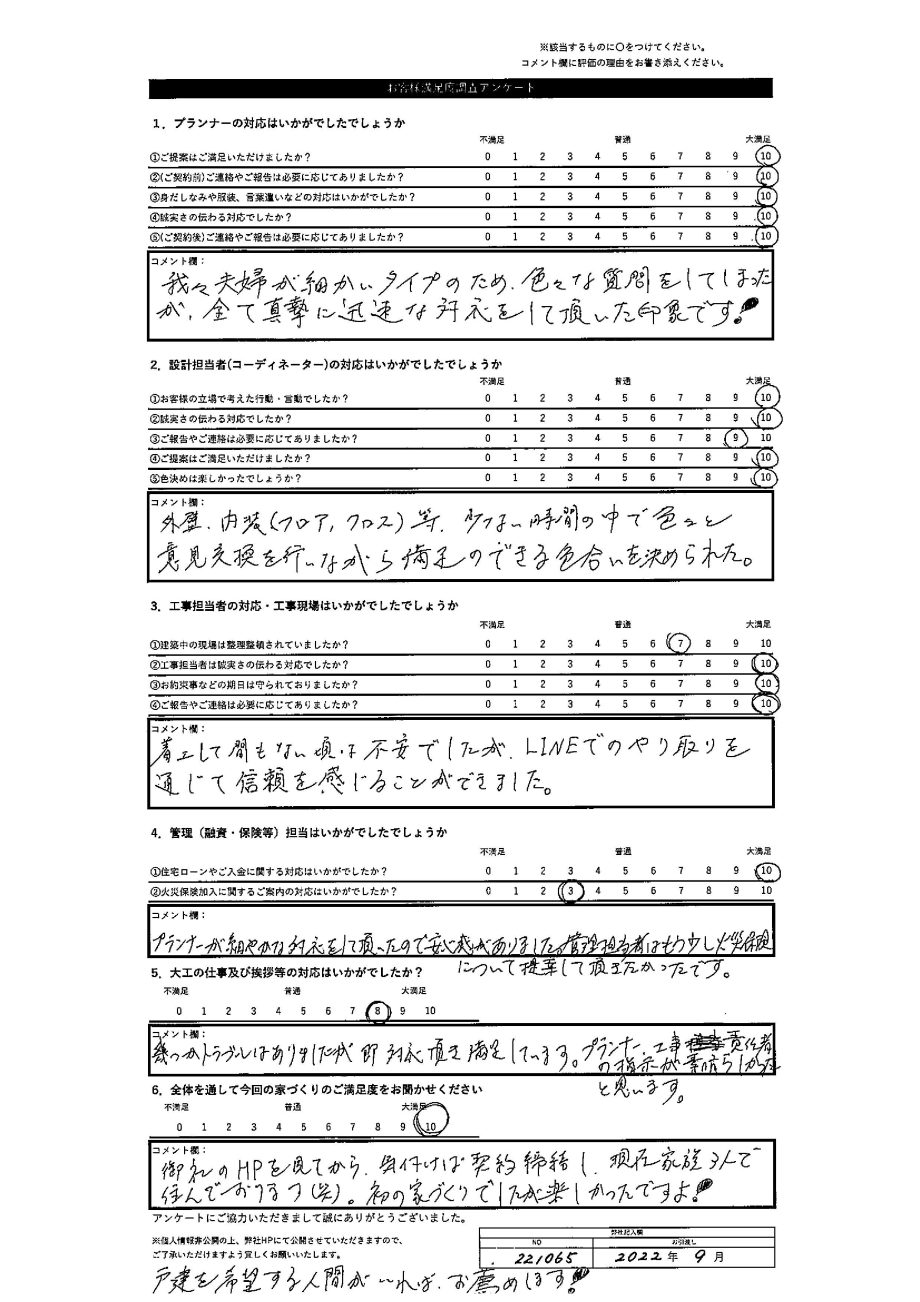 ※該当するものに〇をつけてください。
コメント欄に評価の理由をお書き添えください。
お客様満足度調査アンケート
1．プランナーの対応はいかがでしたでしょうか
不満足 普通 大満足
①ご提案はご満足いただけましたか？ 0 1 2 3 4 5 6 7 8 9 10
②(ご契約前)ご連絡やご報告は必要に応じてありましたか？ 0 1 2 3 4 5 6 7 8 9 10
③身だしなみや服装、言葉遣いなどの対応はいかがでしたか？ 0 1 2 3 4 5 6 7 8 9 10
④誠実さの伝わる対応でしたか？ 0 1 2 3 4 5 6 7 8 9 10
⑤(ご契約後)ご連絡やご報告は必要に応じてありましたか？ 0 1 2 3 4 5 6 7 8 9 10
コメント欄：
我々夫婦が細かいタイプのため、色々な質問をしてしまった
が、全て真摯に迅速な対応をして頂いた印象です!
2．設計担当者(コーディネーター)の対応はいかがでしたでしょうか
不満足 普通 大満足
①お客様の立場で考えた行動・言動でしたか？ 0 1 2 3 4 5 6 7 8 9 10
②誠実さの伝わる対応でしたか？ 0 1 2 3 4 5 6 7 8 9 10
③ご報告やご連絡は必要に応じてありましたか？ 0 1 2 3 4 5 6 7 8 9 10
④ご提案はご満足いただけましたか？ 0 1 2 3 4 5 6 7 8 9 10
⑤色決めは楽しかったでしょうか？ 0 1 2 3 4 5 6 7 8 9 10
コメント欄：
外壁、内装(フロア,クロス)等、少ない時間の中で色々と
意見交換を行いながら満足のできる色合いを決められた。
3．工事担当者の対応・工事現場はいかがでしたでしょうか
不満足 普通 大満足
①建築中の現場は整理整頓されていましたか？ 0 1 2 3 4 5 6 7 8 9 10
②工事担当者は誠実さの伝わる対応でしたか？ 0 1 2 3 4 5 6 7 8 9 10
③お約束事などの期日は守られておりましたか？ 0 1 2 3 4 5 6 7 8 9 10
④ご報告やご連絡は必要に応じてありましたか？ 0 1 2 3 4 5 6 7 8 9 10
コメント欄：
着工して間もない頃は不安でしたが、LINEでのやり取りを
通じて信頼を感じることができました。
4．管理（融資・保険等）担当はいかがでしたでしょうか
不満足 普通 大満足
①住宅ローンやご入金に関する対応はいかがでしたか？ 0 1 2 3 4 5 6 7 8 9 10
②火災保険加入に関するご案内の対応はいかがでしたか？ 0 1 2 3 4 5 6 7 8 9 10
コメント欄：
プランナーが細やかな対応をして頂いたので安心感がありました。管理担当者はもう少し火災保険
について提案して頂きたかったです。
5．大工の仕事及び挨拶等の対応はいかがでしたか？
不満足 普通 大満足
0 1 2 3 4 5 6 7 8 9 10
コメント欄：
幾つかトラブルはありましたが即対応頂き満足しています。プランナー、工事責任者
の指示が素晴らしかった
と思います。
6．全体を通して今回の家づくりのご満足度をお聞かせください
不満足 普通 大満足
0 1 2 3 4 5 6 7 8 9 10
コメント欄：
御社のHPを見てから、気付けば契約締結し、現在家族3人で
住んでおります(笑)。初の家づくりでしたが楽しかったですよ!
アンケートにご協力いただきまして誠にありがとうございました。
※個人情報非公開の上、弊社HPにて公開させていただきますので、
ご了承いただけますよう宜しくお願いいたします。
弊社記入欄
NO お引渡し
221065 2022年 9月
戸建を希望する人間がいれば、お薦めします!